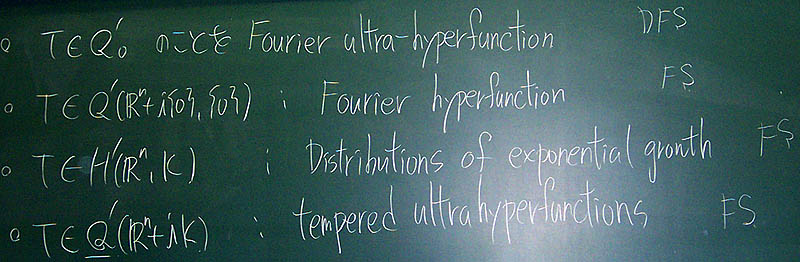 ○ T∈Q'₀ のことを Fourier ultra-hyperfunction DFS
○ T∈Q'(ℝⁿ+i{0}, {0}) ; Fourier hyperfunction FS
○ T∈H'(ℝⁿ, K) ; Distributions of exponential growth FS
○ T∈Q'(ℝⁿ+iK) ; tempered ultrahyperfunctions FS